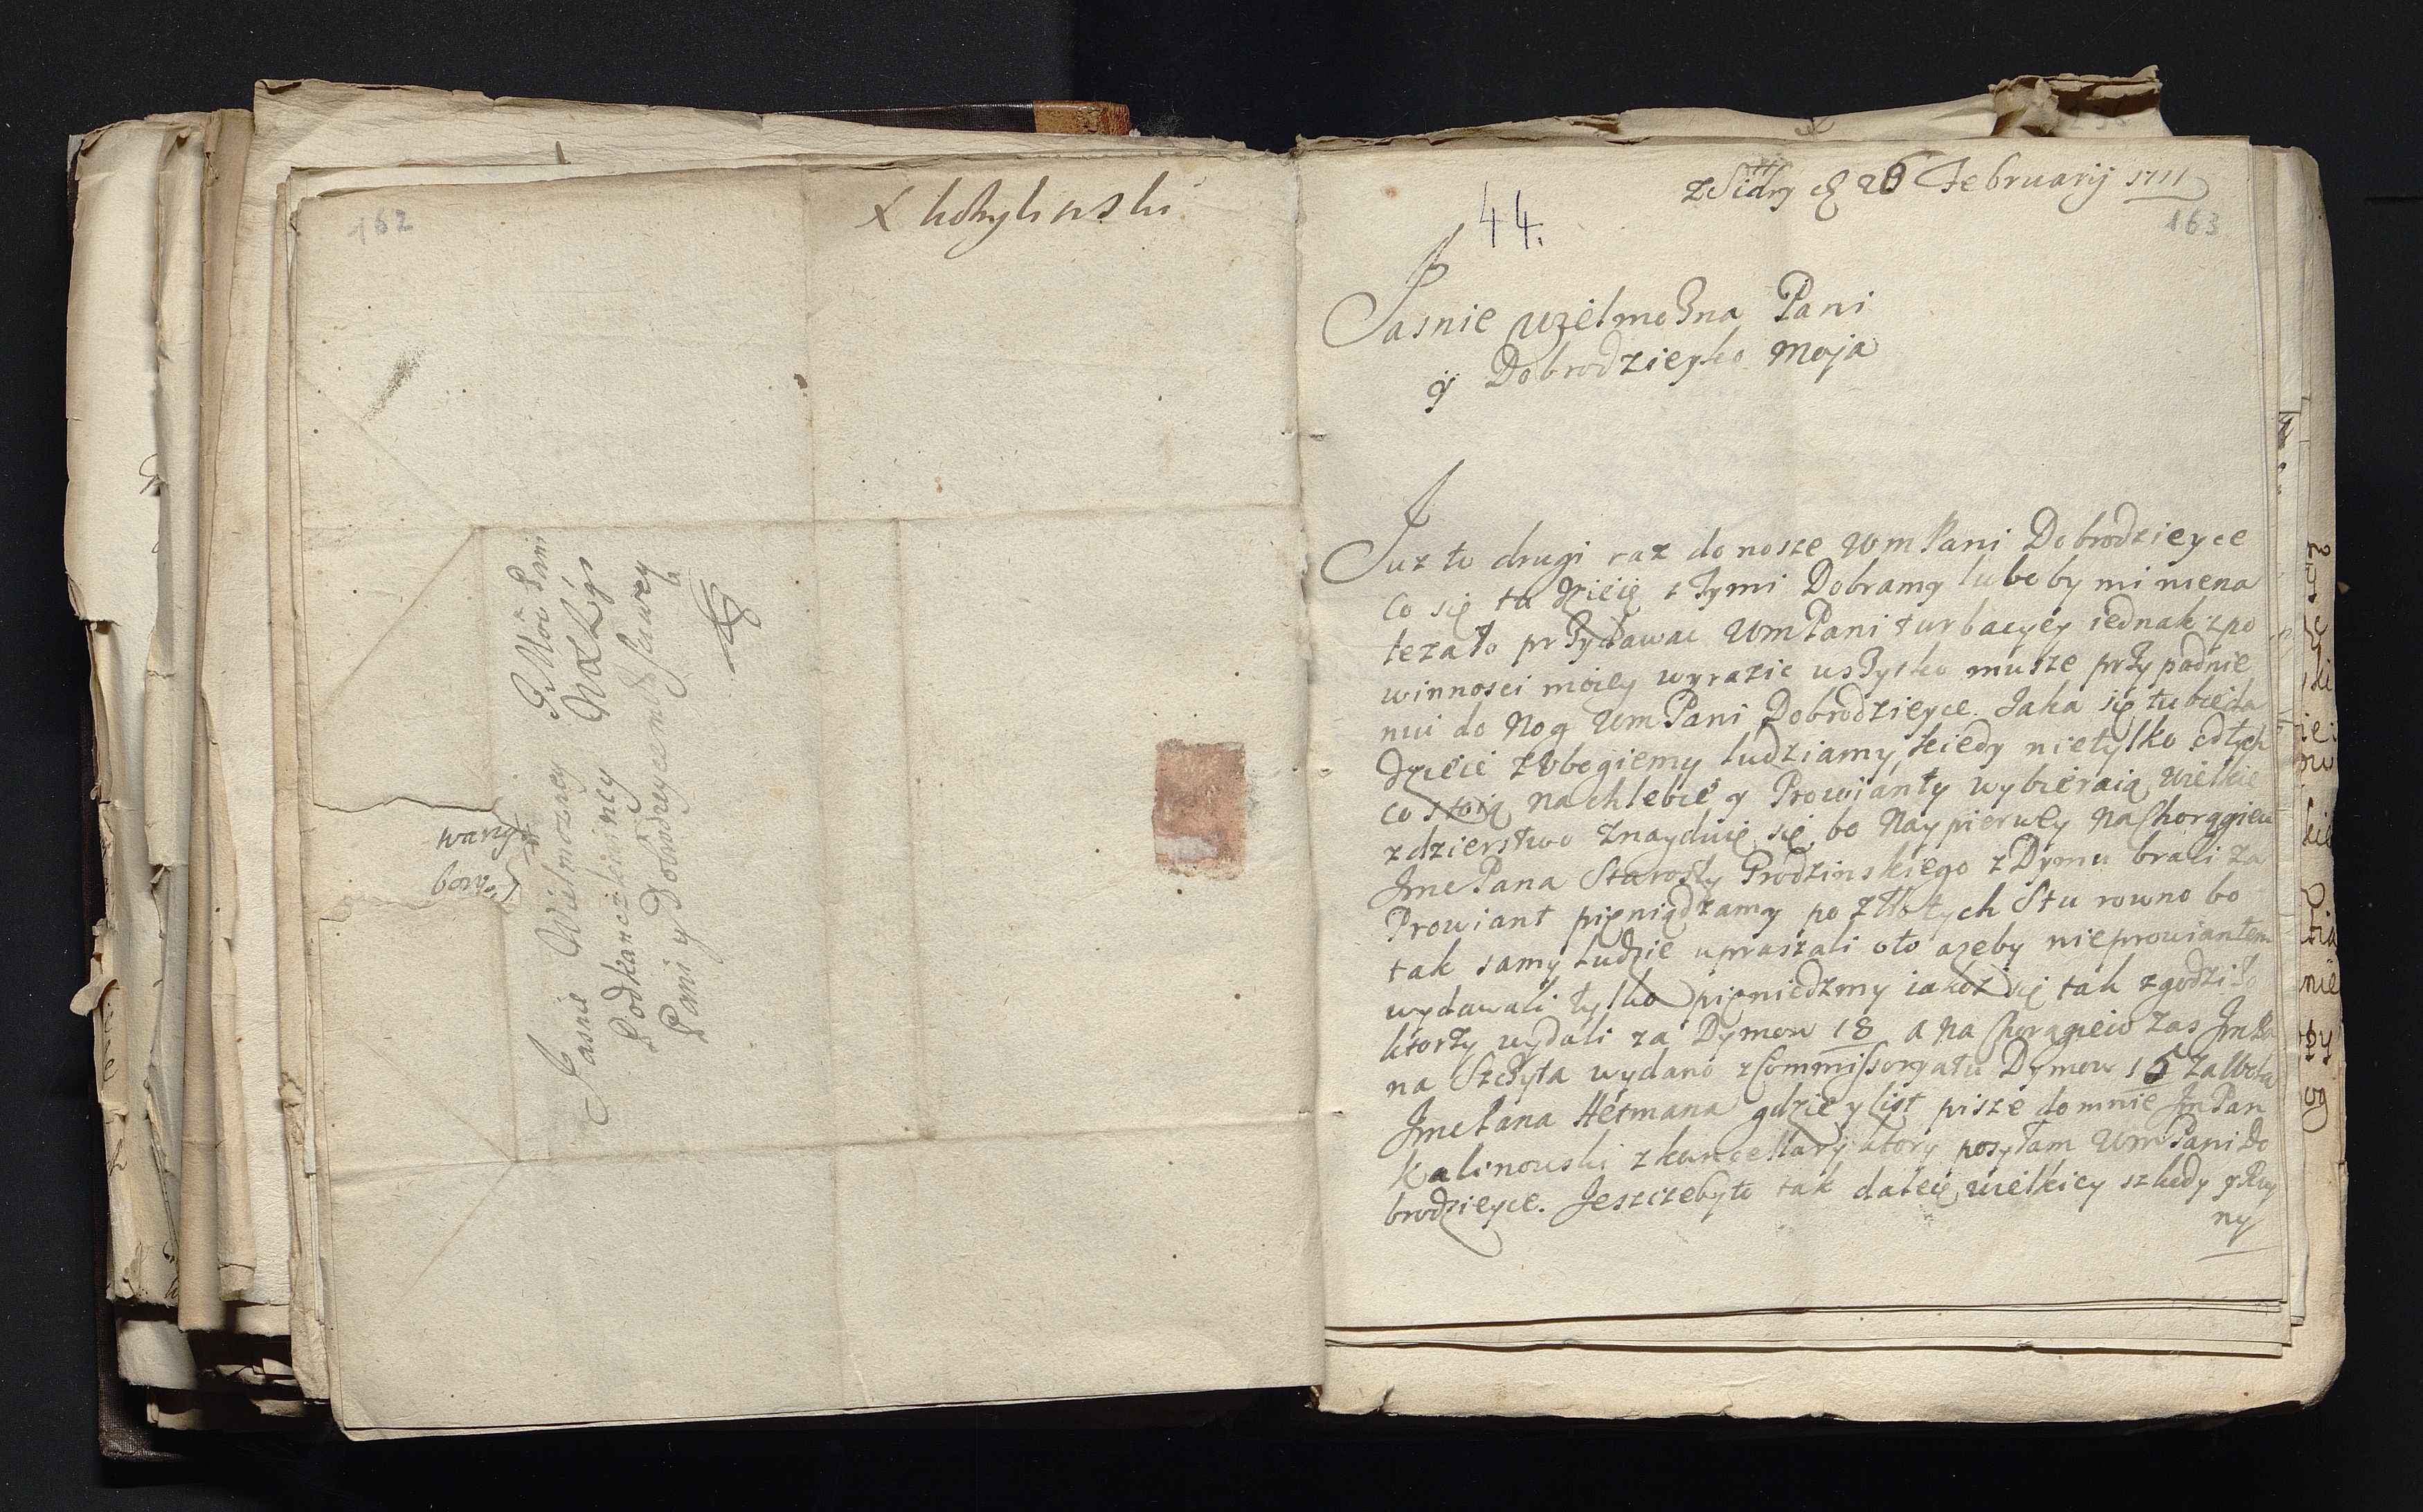 162
X kobylinski
Jasnie Wielmozney J. Mci Pani
Podkanclerzyney W X Lgo
Pani y Dobrodzyce
wany
z Sidry d 26 Februarij 1711
163
44.
Jasnie Wielmozna Pani
y Dobrodzieyko moja
Juz to drugi raz donosze WmPani Dobrodzieyce
co się tu dzieie z tymi Dobramy lubo by mi niena
lezało przydawac WmPani turbacyey iednak z po
winnosci moiey wyrazic uszytko musze przypadnie
nui do Nog WmPani Dobrodzieyce. Jaka się tu bieda
dzieie z Vbogiemy ludziamy, kiedy nietylko od tych
co stoią na chlebie y Prowianty wybieraią, wielkie
zdzierstwo znayduie się, bo Naypierwey na Chorągiew
Jme Pana Starosty Grodzinskiego z Dymu brali za
Prowiant pieniądzamy po złotych Stu rowno bo
tak samy ludzie upraszali oto azeby nie prowiantem
wydawali tylko pieniedzmy iakoz się tak zgodziło
ktorzy wydali za Dymow 18 a na Chorągiew zas JmPa
na Szczyta wydano z Commissoryatu Dymow 15 za Wola
Jme Pana Hetmana gdzie y list pisze do mnie JmPan
Kalinowski z kancellaryi ktory posyłam WmPani Do
brodzieyce. Jeszczeby to tak daley wielkiey szkody y Ruy
ny